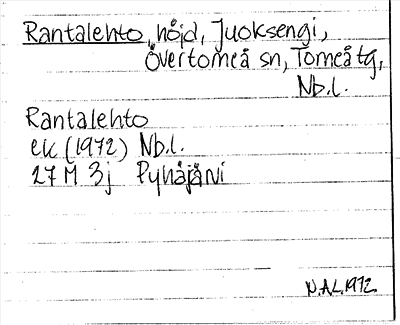 Rantalehto, höjd, Juoksengi,
Övertorneå sn, Torneå tg,
Nb.l.
Rantalehto
ek (1972) Nb.l.
27 M 3j Pyhäjärvi
N.Å.L. 1972